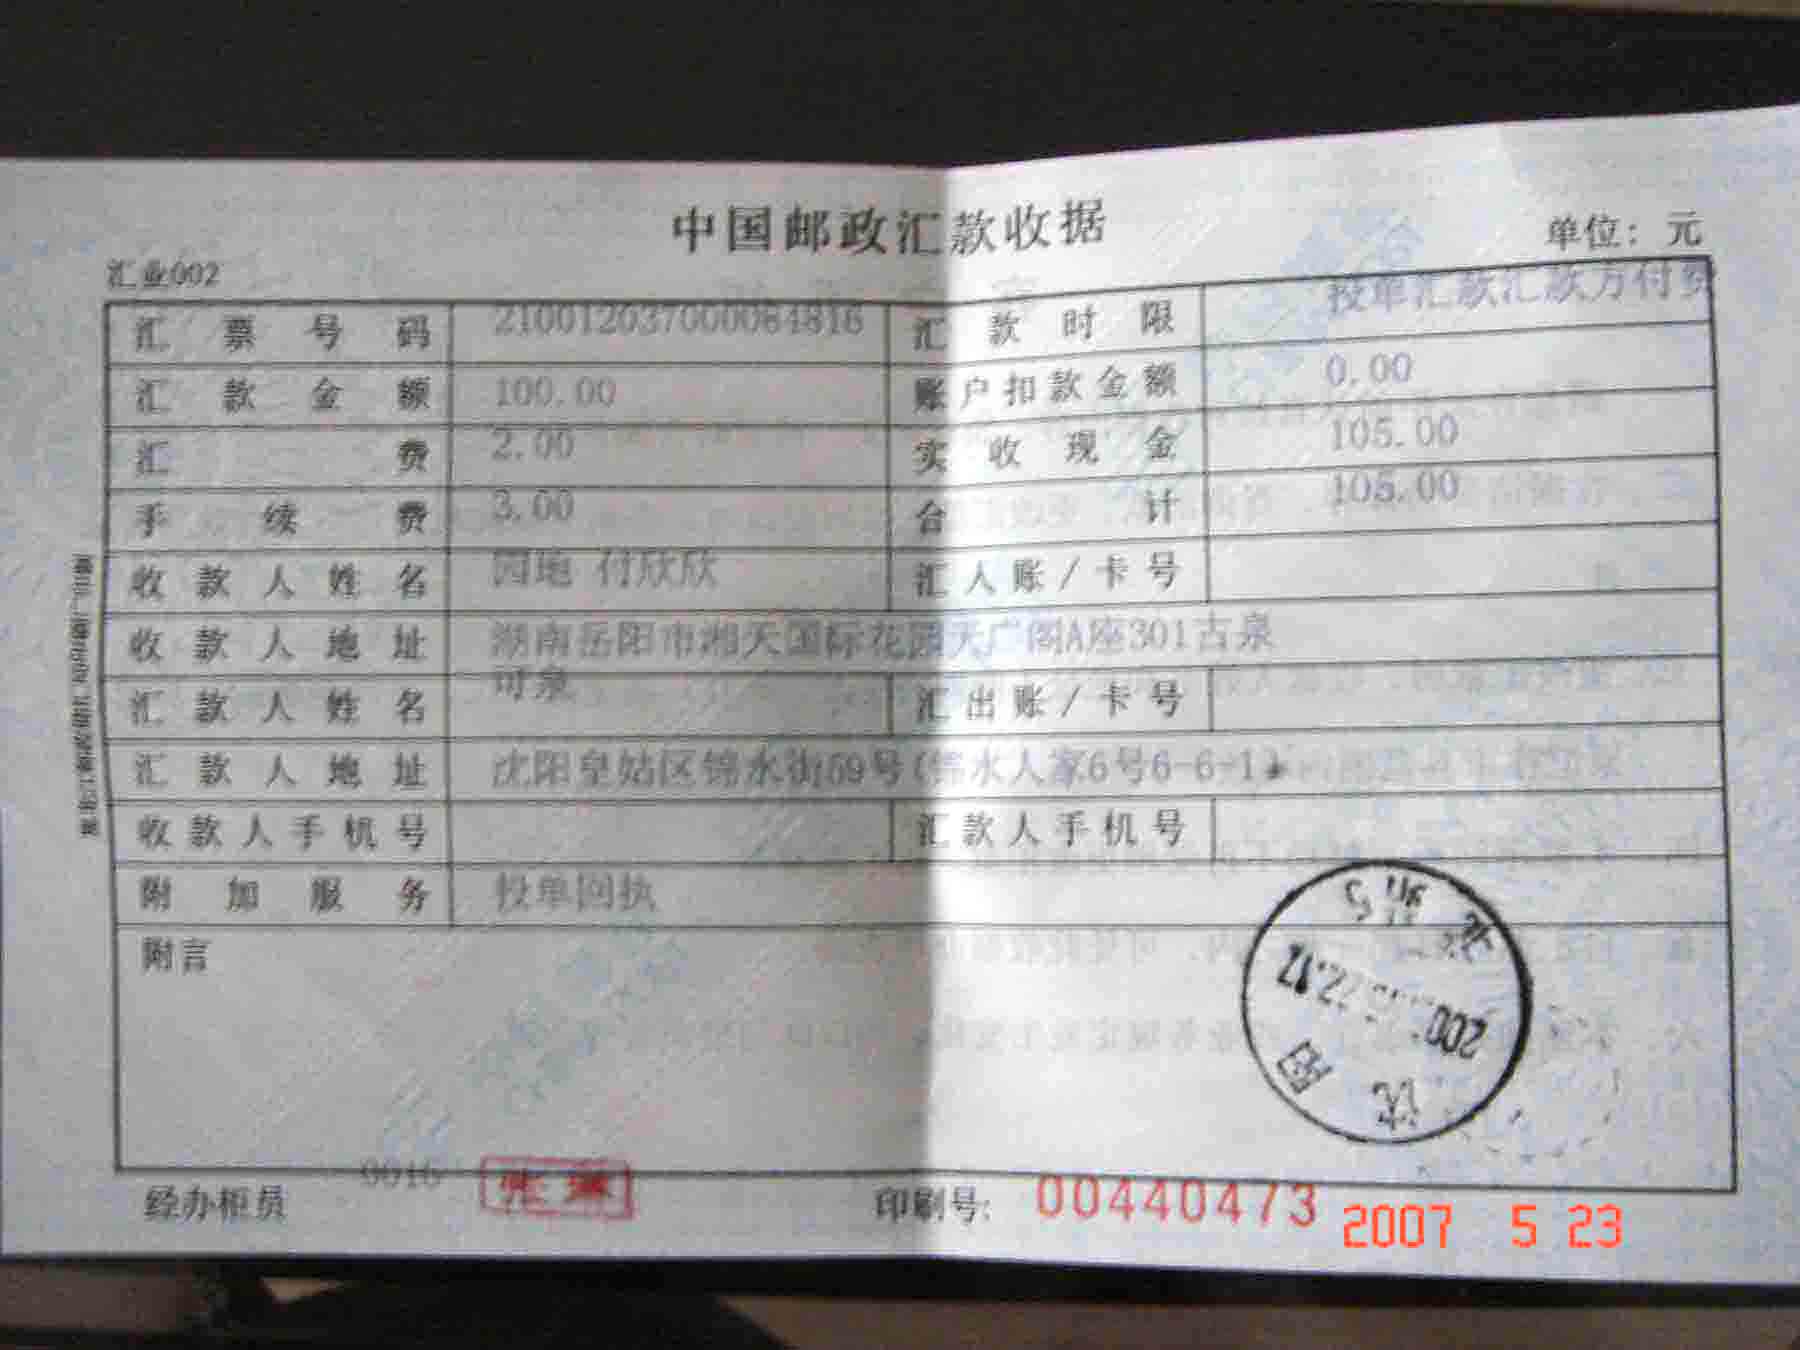 中国邮政汇款收据
汇业002 单位：元
汇票号码 210012037000084816 汇款时限 投单汇款汇款方付费
汇款金额 100.00 账户扣款金额 0.00
汇费 2.00 实收现金 105.00
手续费 3.00 合计 105.00
收款人姓名 园地 付欣欣 汇入账/卡号
收款人地址 湖南岳阳市湘天国际花园天广阁A座301古泉
汇款人姓名 可泉 汇出账/卡号
汇款人地址 沈阳皇姑区锦水街59号(锦水人家6号6-6-1)
收款人手机号 汇款人手机号
附加服务 投单回执
附言
沈阳
经办柜员 0016 印刷号: 00440473
2007 5 23